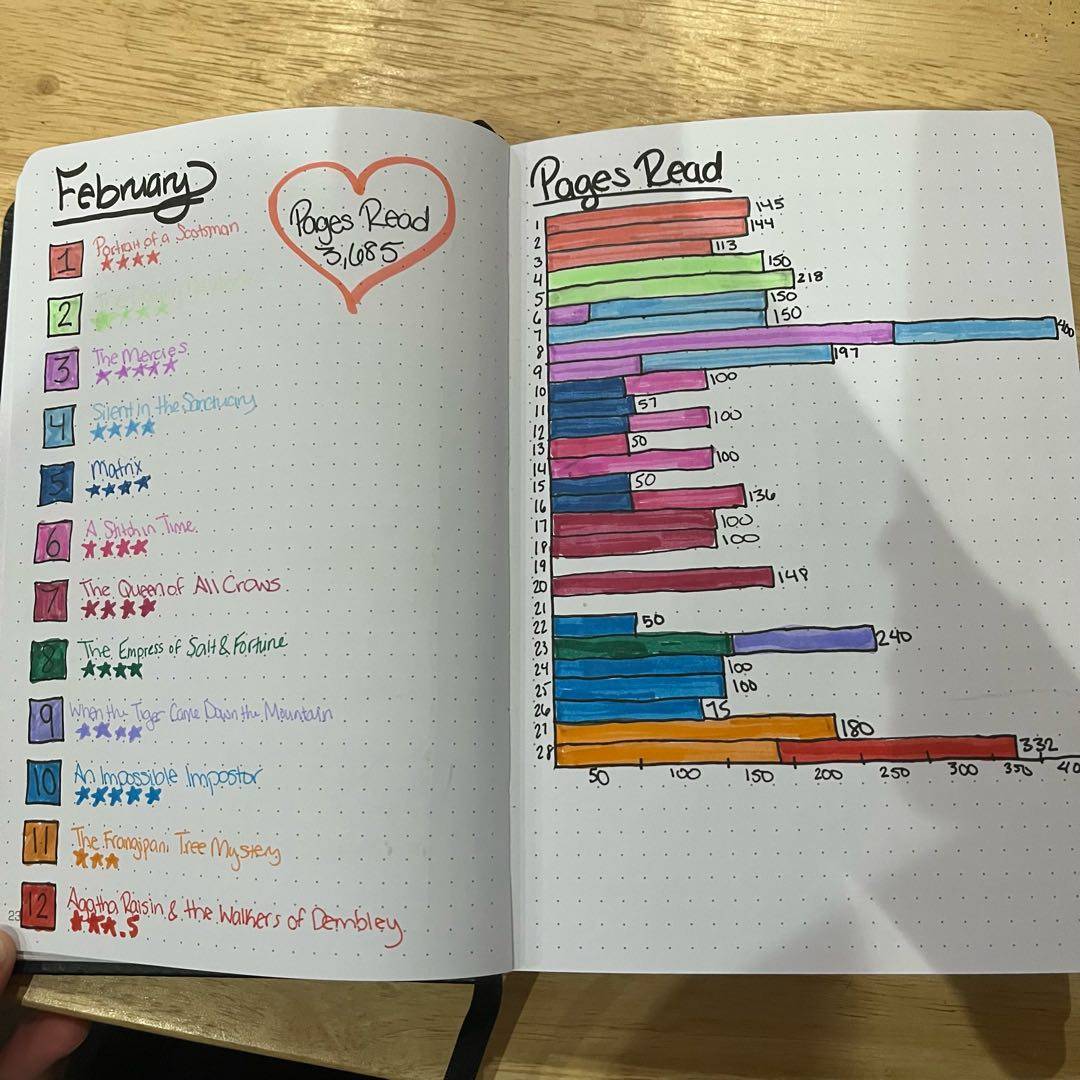 February
Pages Read
3,685
1 Portrait of a Scotsman
2
3 The Mercies
4 Silent in the Sanctuary
5 Matrix
6 A Stitch in Time
7 The Queen of All Crows
8 The Empress of Salt & Fortune
9 When the Tiger Came Down the Mountain
10 An Impossible Impostor
11 The Frangipani Tree Mystery
12 Agatha Raisin & the Walkers of Dembley
.5
23
Pages Read
1 145
2 144
3 113
4 150
5 218
6 150
7 150
8
9 197
10 100
11 57
12 100
13 50
14 100
15 50
16 136
17 100
18 100
19
20 148
21
22 50
23 240
24 100
25 100
26 75
27 180
28 332
50 100 150 200 250 300 350